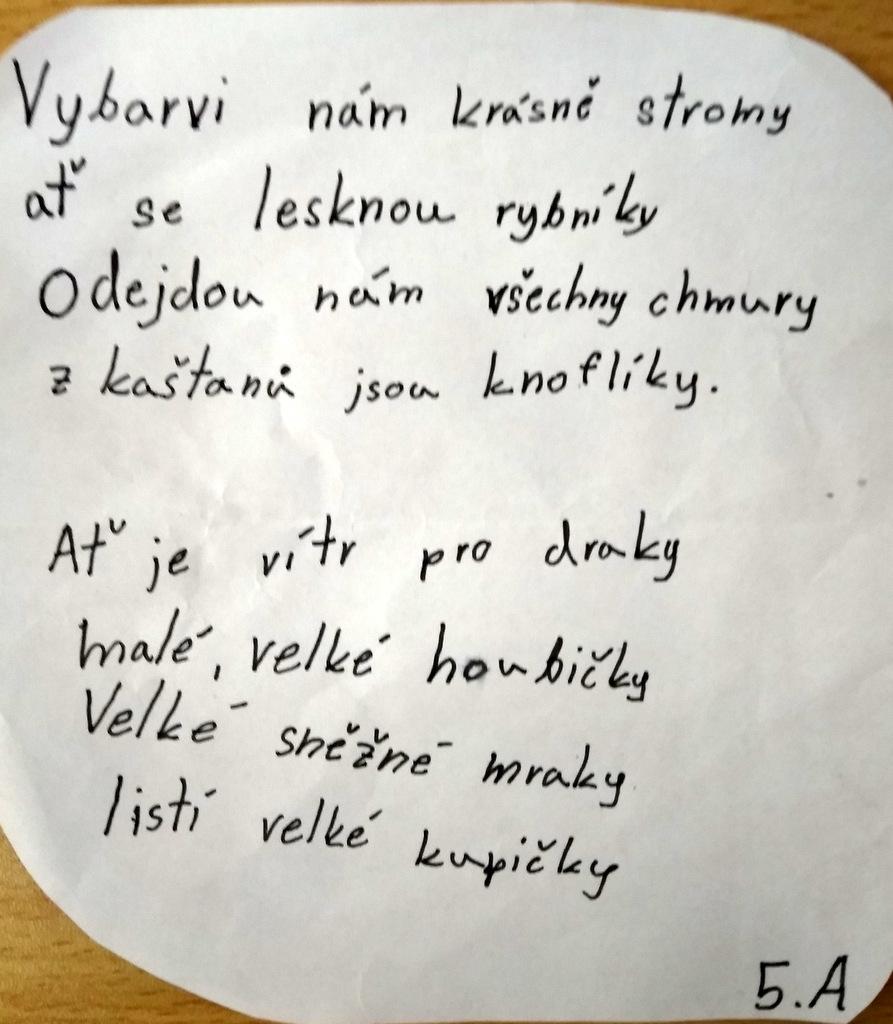 Vybarvi nám krásně stromy
ať se lesknou rybníky
Odejdou nám všechny chmury
z kaštanů jsou knoflíky.
Ať je vítr pro draky
malé, velké houbičky
Velké sněžné mraky
listí velké kupičky
5.A